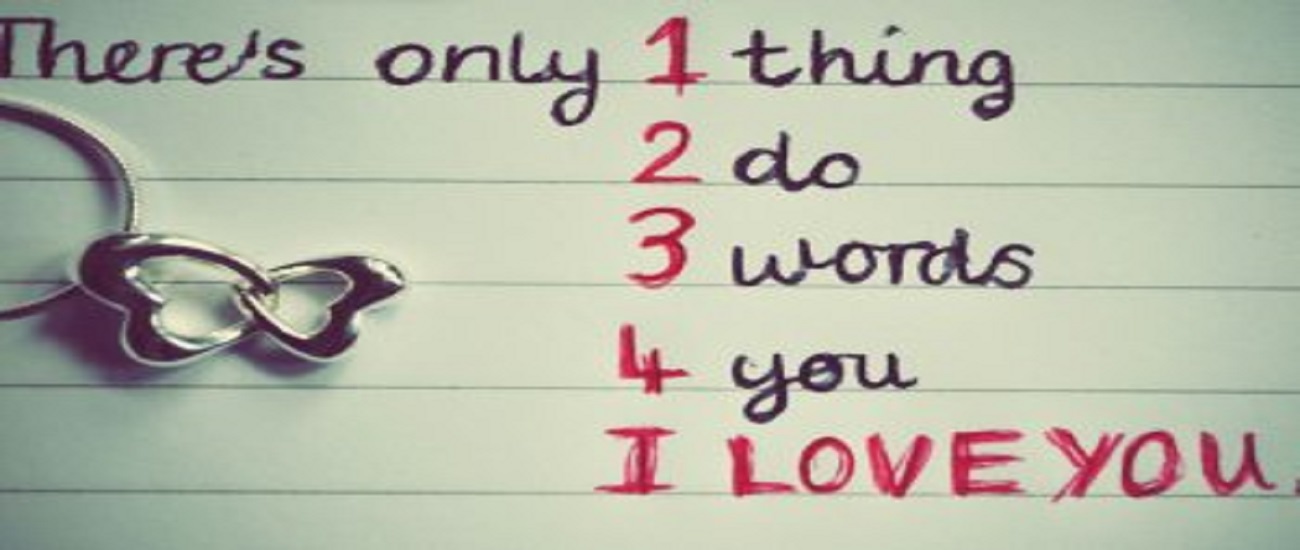 There's only 1 thing
2 do
3 words
4 you
I LOVE YOU.